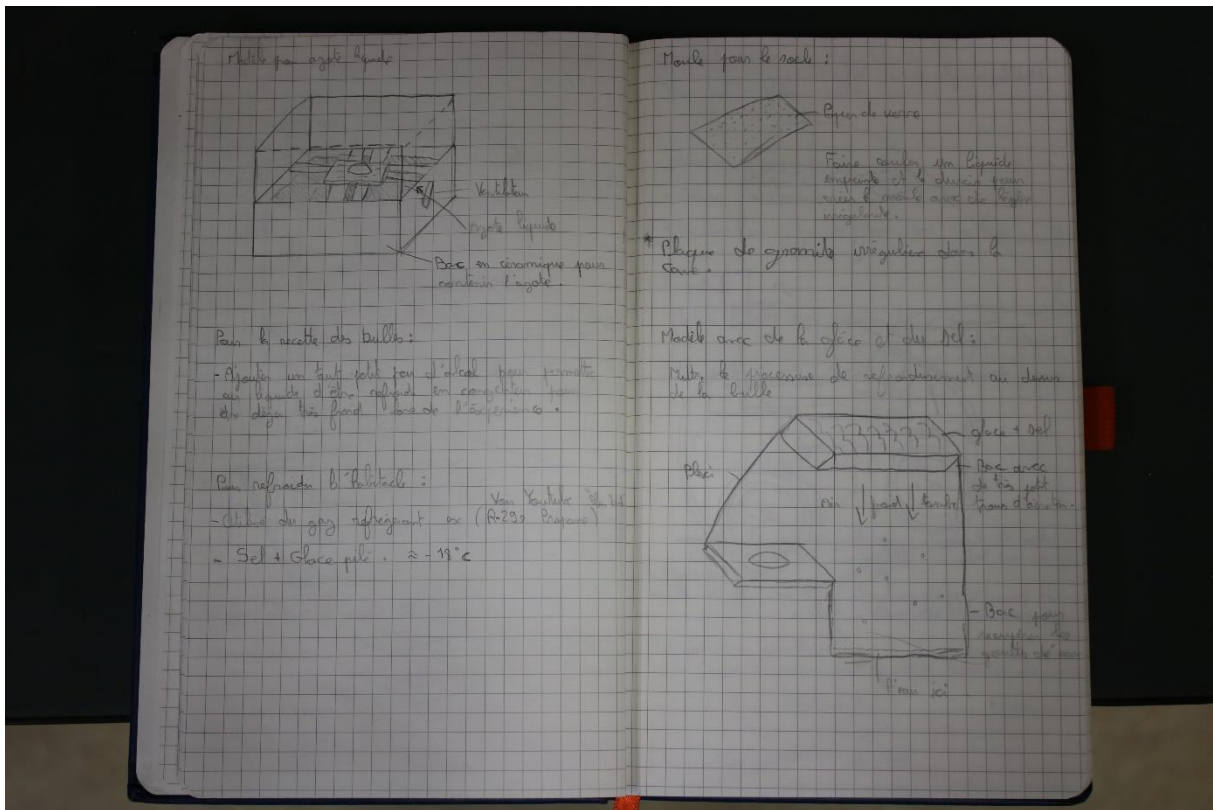 Modèle pour azote liquide
Ventilateur
Azote liquide
Bac en céramique pour
contenir l'azote.
Pour la recette des bulles :
- Ajouter un tout petit peu d'alcool pour permettre
au liquide d'être refroidi en congélateur pour
être déjà très froid lors de l'expérience.
Pour refroidir l'habitacle :
Voir Youtube
- Utiliser du gaz réfrigérant ex (R-290 Propane)
- Sel + Glace pilé. ≈ -18°C
Moule pour le socle :
de verre
Faire couler un liquide
empreinte et le durcir pour
créer le moule avec de légère
irrégularité.
* Plaque de granite irrégulière dans la
cave.
Modèle avec de la glace et du sel :
Mettre le processus de refroidissement au dessus
de la bulle
glace + sel
Plexi
Bac avec
de très petit
trous d'aération.
air froid tombe
- Bac pour
récupérer les
gouttes d'eau
l'eau ici